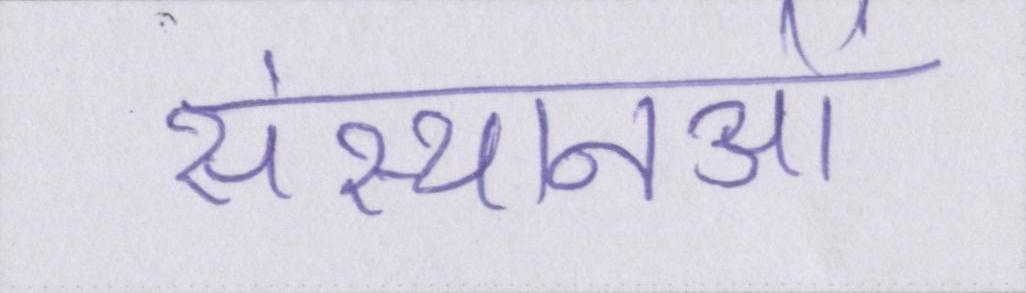 संस्थानओं